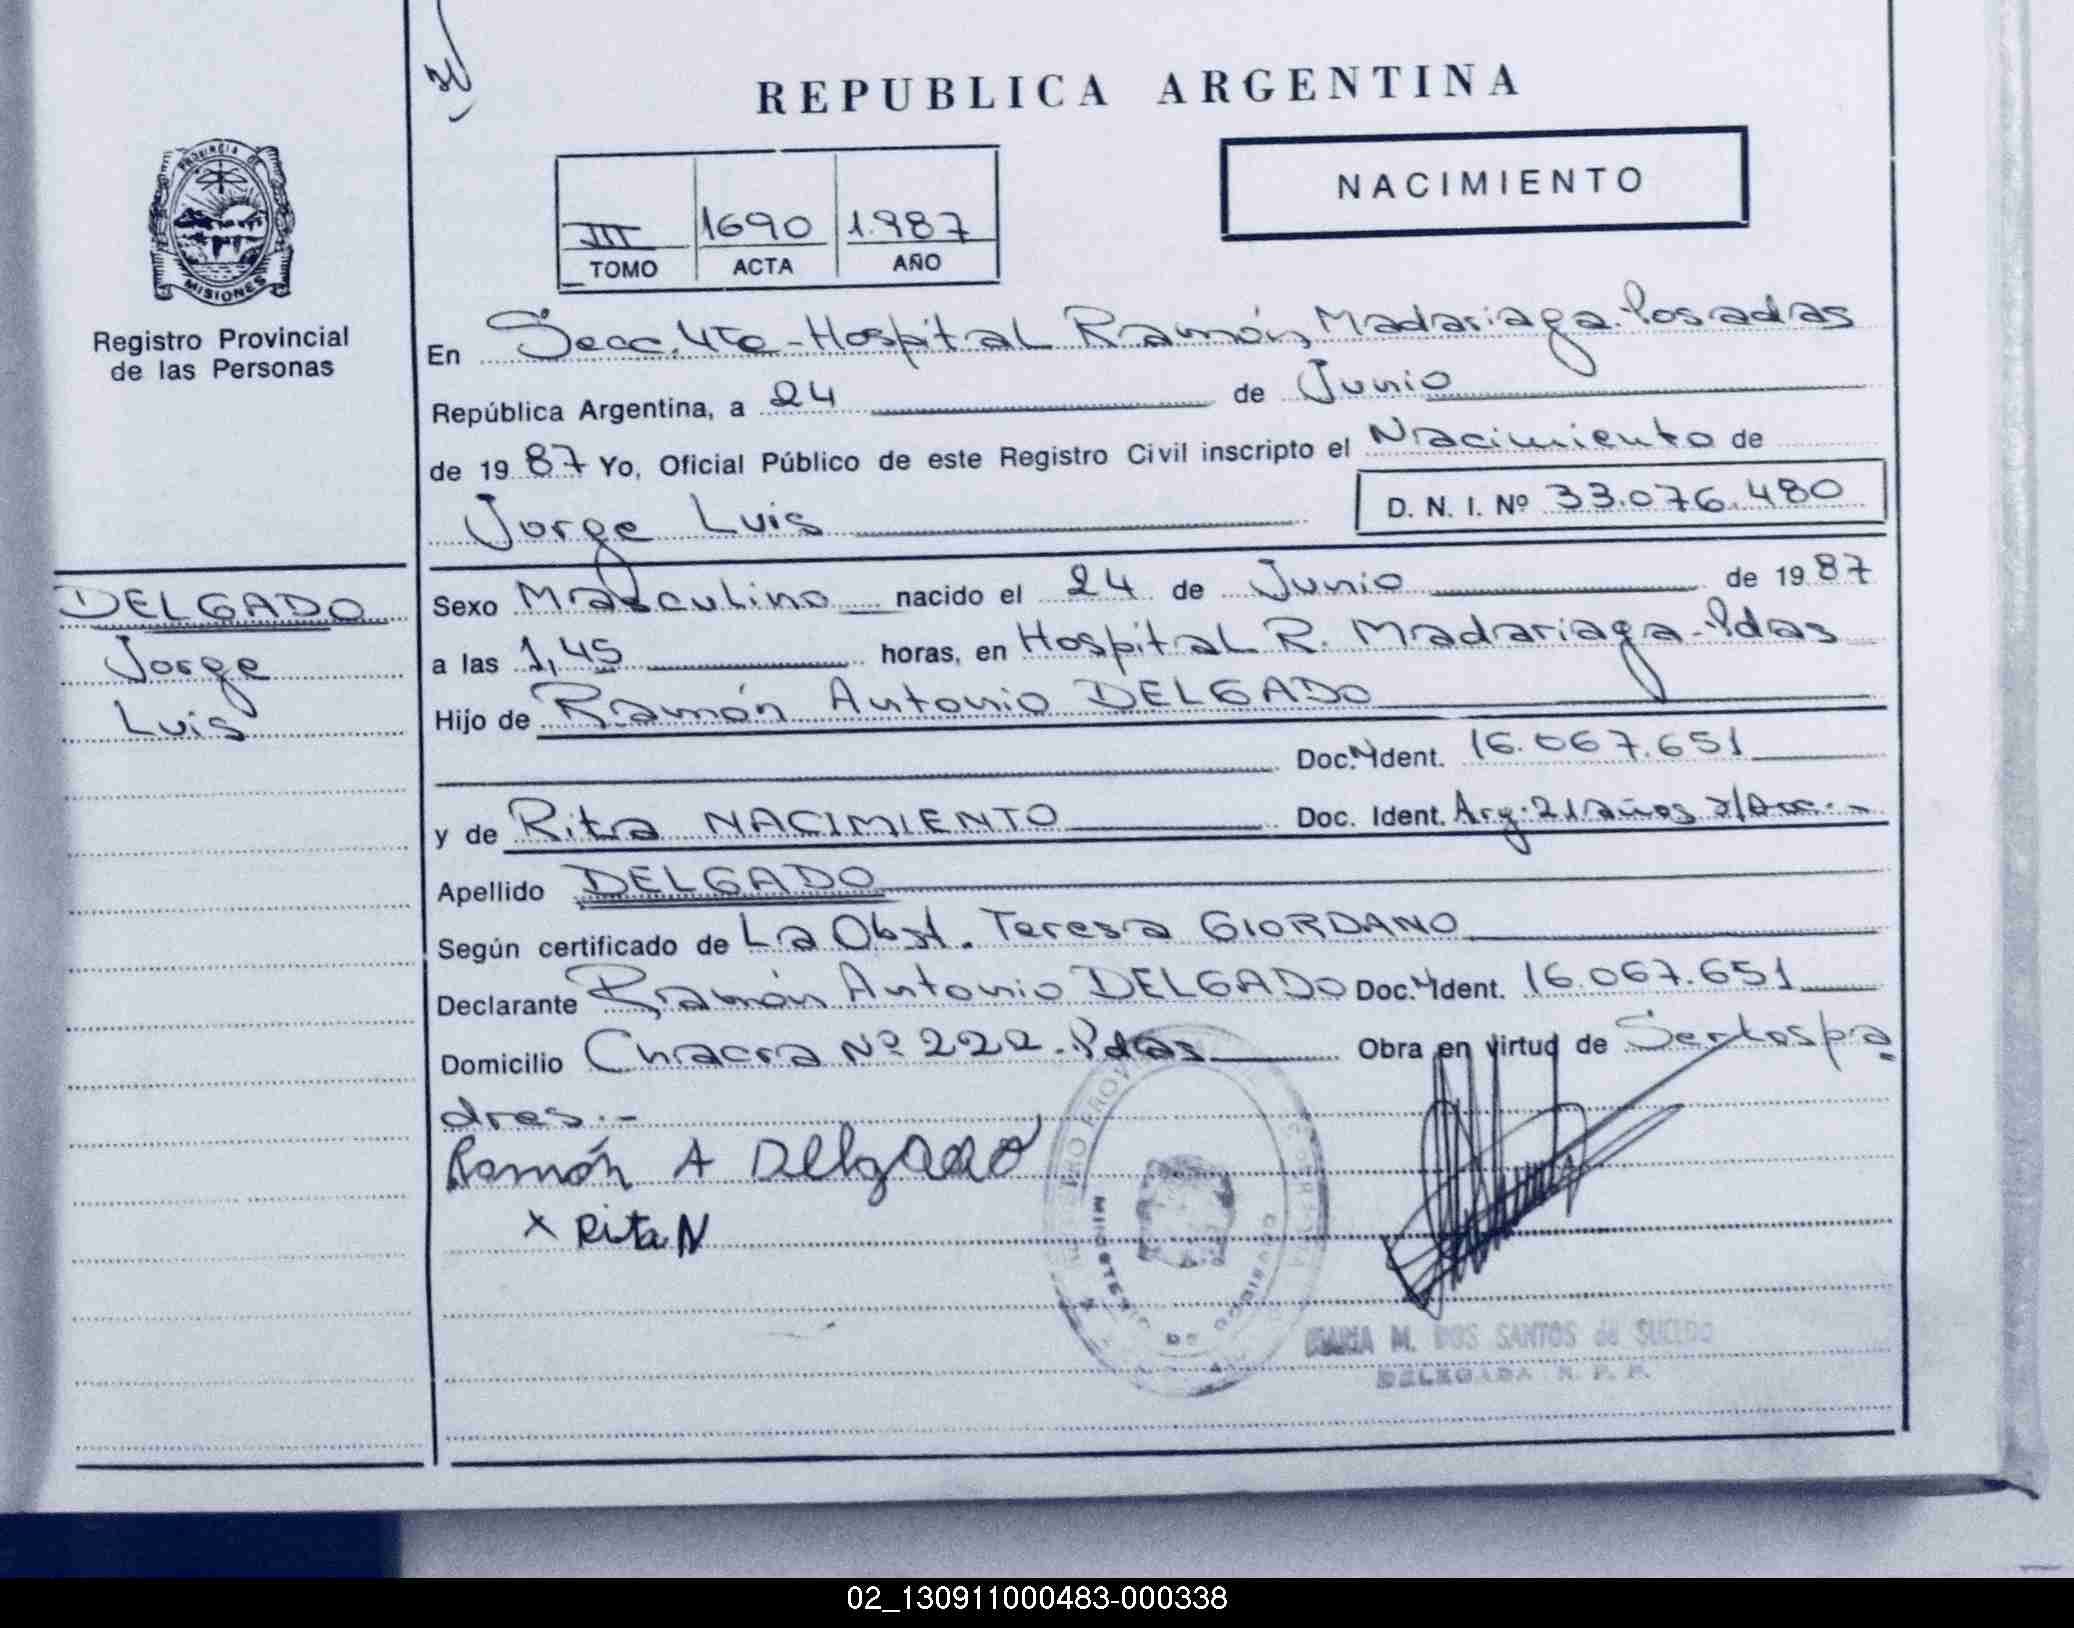 REPUBLICA ARGENTINA
NACIMIENTO
III 1690 1.987
TOMO ACTA AÑO
PROVINCIA DE
MISIONES
Registro Provincial
de las Personas
DELGADO
Jorge
Luis
En Secc. 4ta - Hospital Ramón Madariaga. Posadas
República Argentina, a 24 de Junio
de 1987 Yo, Oficial Público de este Registro Civil inscripto el Nacimiento de
Jorge Luis D. N. I. Nº 33.076.480
Sexo Masculino nacido el 24 de Junio de 1987
a las 1,45 horas, en Hospital R. Madariaga - Pdas
Hijo de Ramón Antonio DELGADO
Doc. Ident. 16.067.651
y de Rita NACIMIENTO Doc. Ident. Arg: 21 años
Apellido DELGADO
Según certificado de La Obst. Teresa GIORDANO
Declarante Ramón Antonio DELGADO Doc. Ident. 16.067.651
Domicilio Chacra Nº 222 - Pdas Obra en virtud de Ser los pa
dres.-
Ramón A Delgado
x Rita N
MARIA M. DOS SANTOS de SUCEDO
DELEGADA R. P. P.
02_130911000483-000338